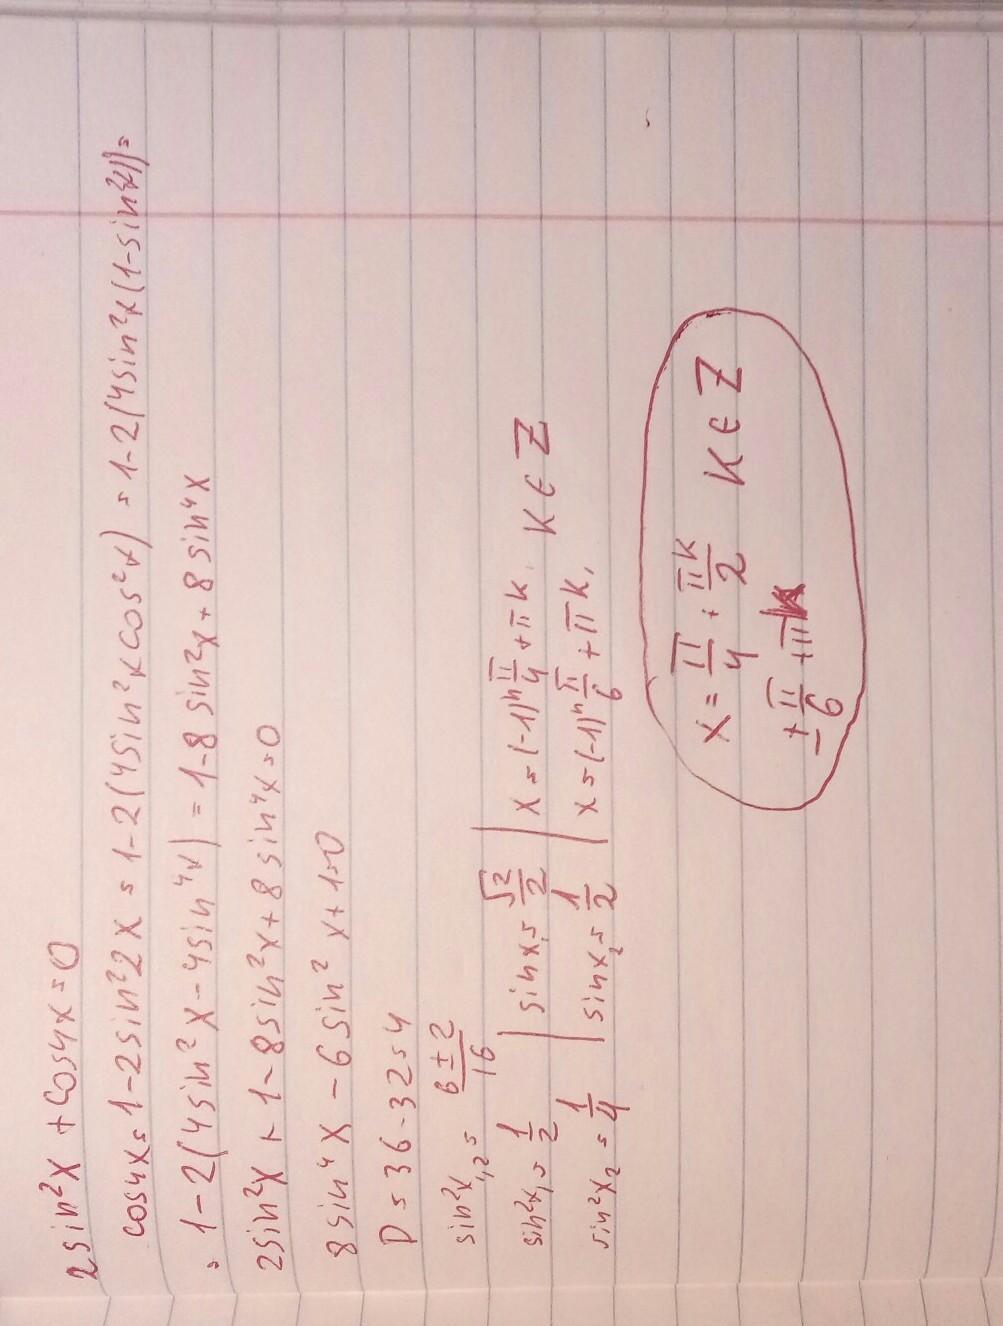 2sin²x + cos4x = 0
cos4x = 1-2sin²2x = 1-2(4sin²x cos²x) = 1-2(4sin²x(1-sin²x)) =
= 1-2(4sin²x-4sin⁴x) = 1-8sin²x+8sin⁴x
2sin²x+1-8sin²x+8sin⁴x=0
8sin⁴x-6sin²x+1=0
D=36-32=4
sin²x₁,₂= (6±2)/16
sin²x₁=1/2 | sinx₁=√2/2 | x=(-1)ⁿ π/4 +πk, k∈Z
sin²x₂=1/4 | sinx₂=1/2 | x=(-1)ⁿ π/6 +πk,
x= π/4 + πk/2 k∈Z
± π/6 +πk